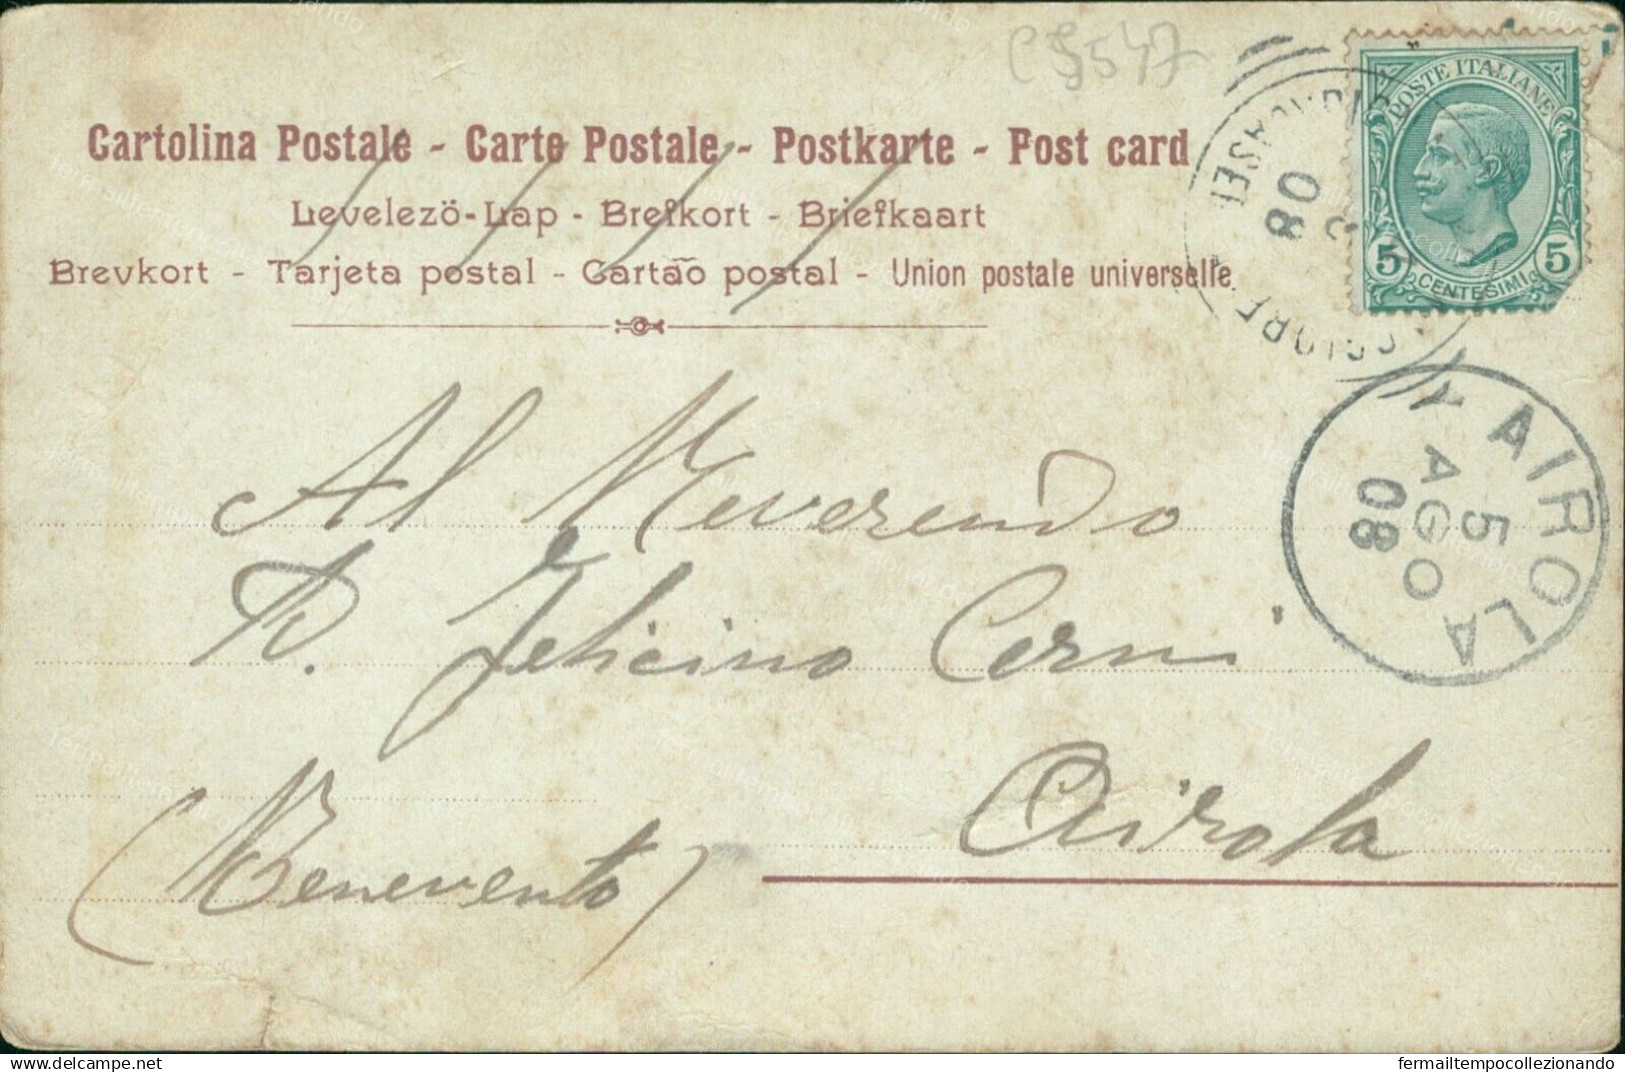 C9547
Cartolina Postale - Carte Postale - Postkarte - Post card
Levelezö-Lap - Brefkort - Briefkaart
Brevkort - Tarjeta postal - Cartão postal - Union postale universelle
POSTE ITALIANE
5 CENTESIMI 5
08
AIROLA
5
AGO
08
Al Reverendo
D. Felicino Cerni
Airola
(Benevento)
delcampe.net
fermailtempocollezionando